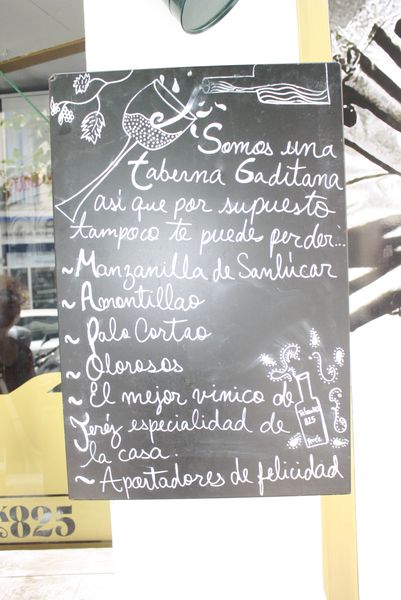 Somos una
taberna Gaditana
así que por supuesto
tampoco te puedes perder...
~Manzanilla de Sanlúcar
~ Amontillao
~ Palo Cortao
~ Olorosos
~ El mejor vinico de
Jeréz especialidad de
la casa.
~ Aportadores de felicidad
825
Jerez
825